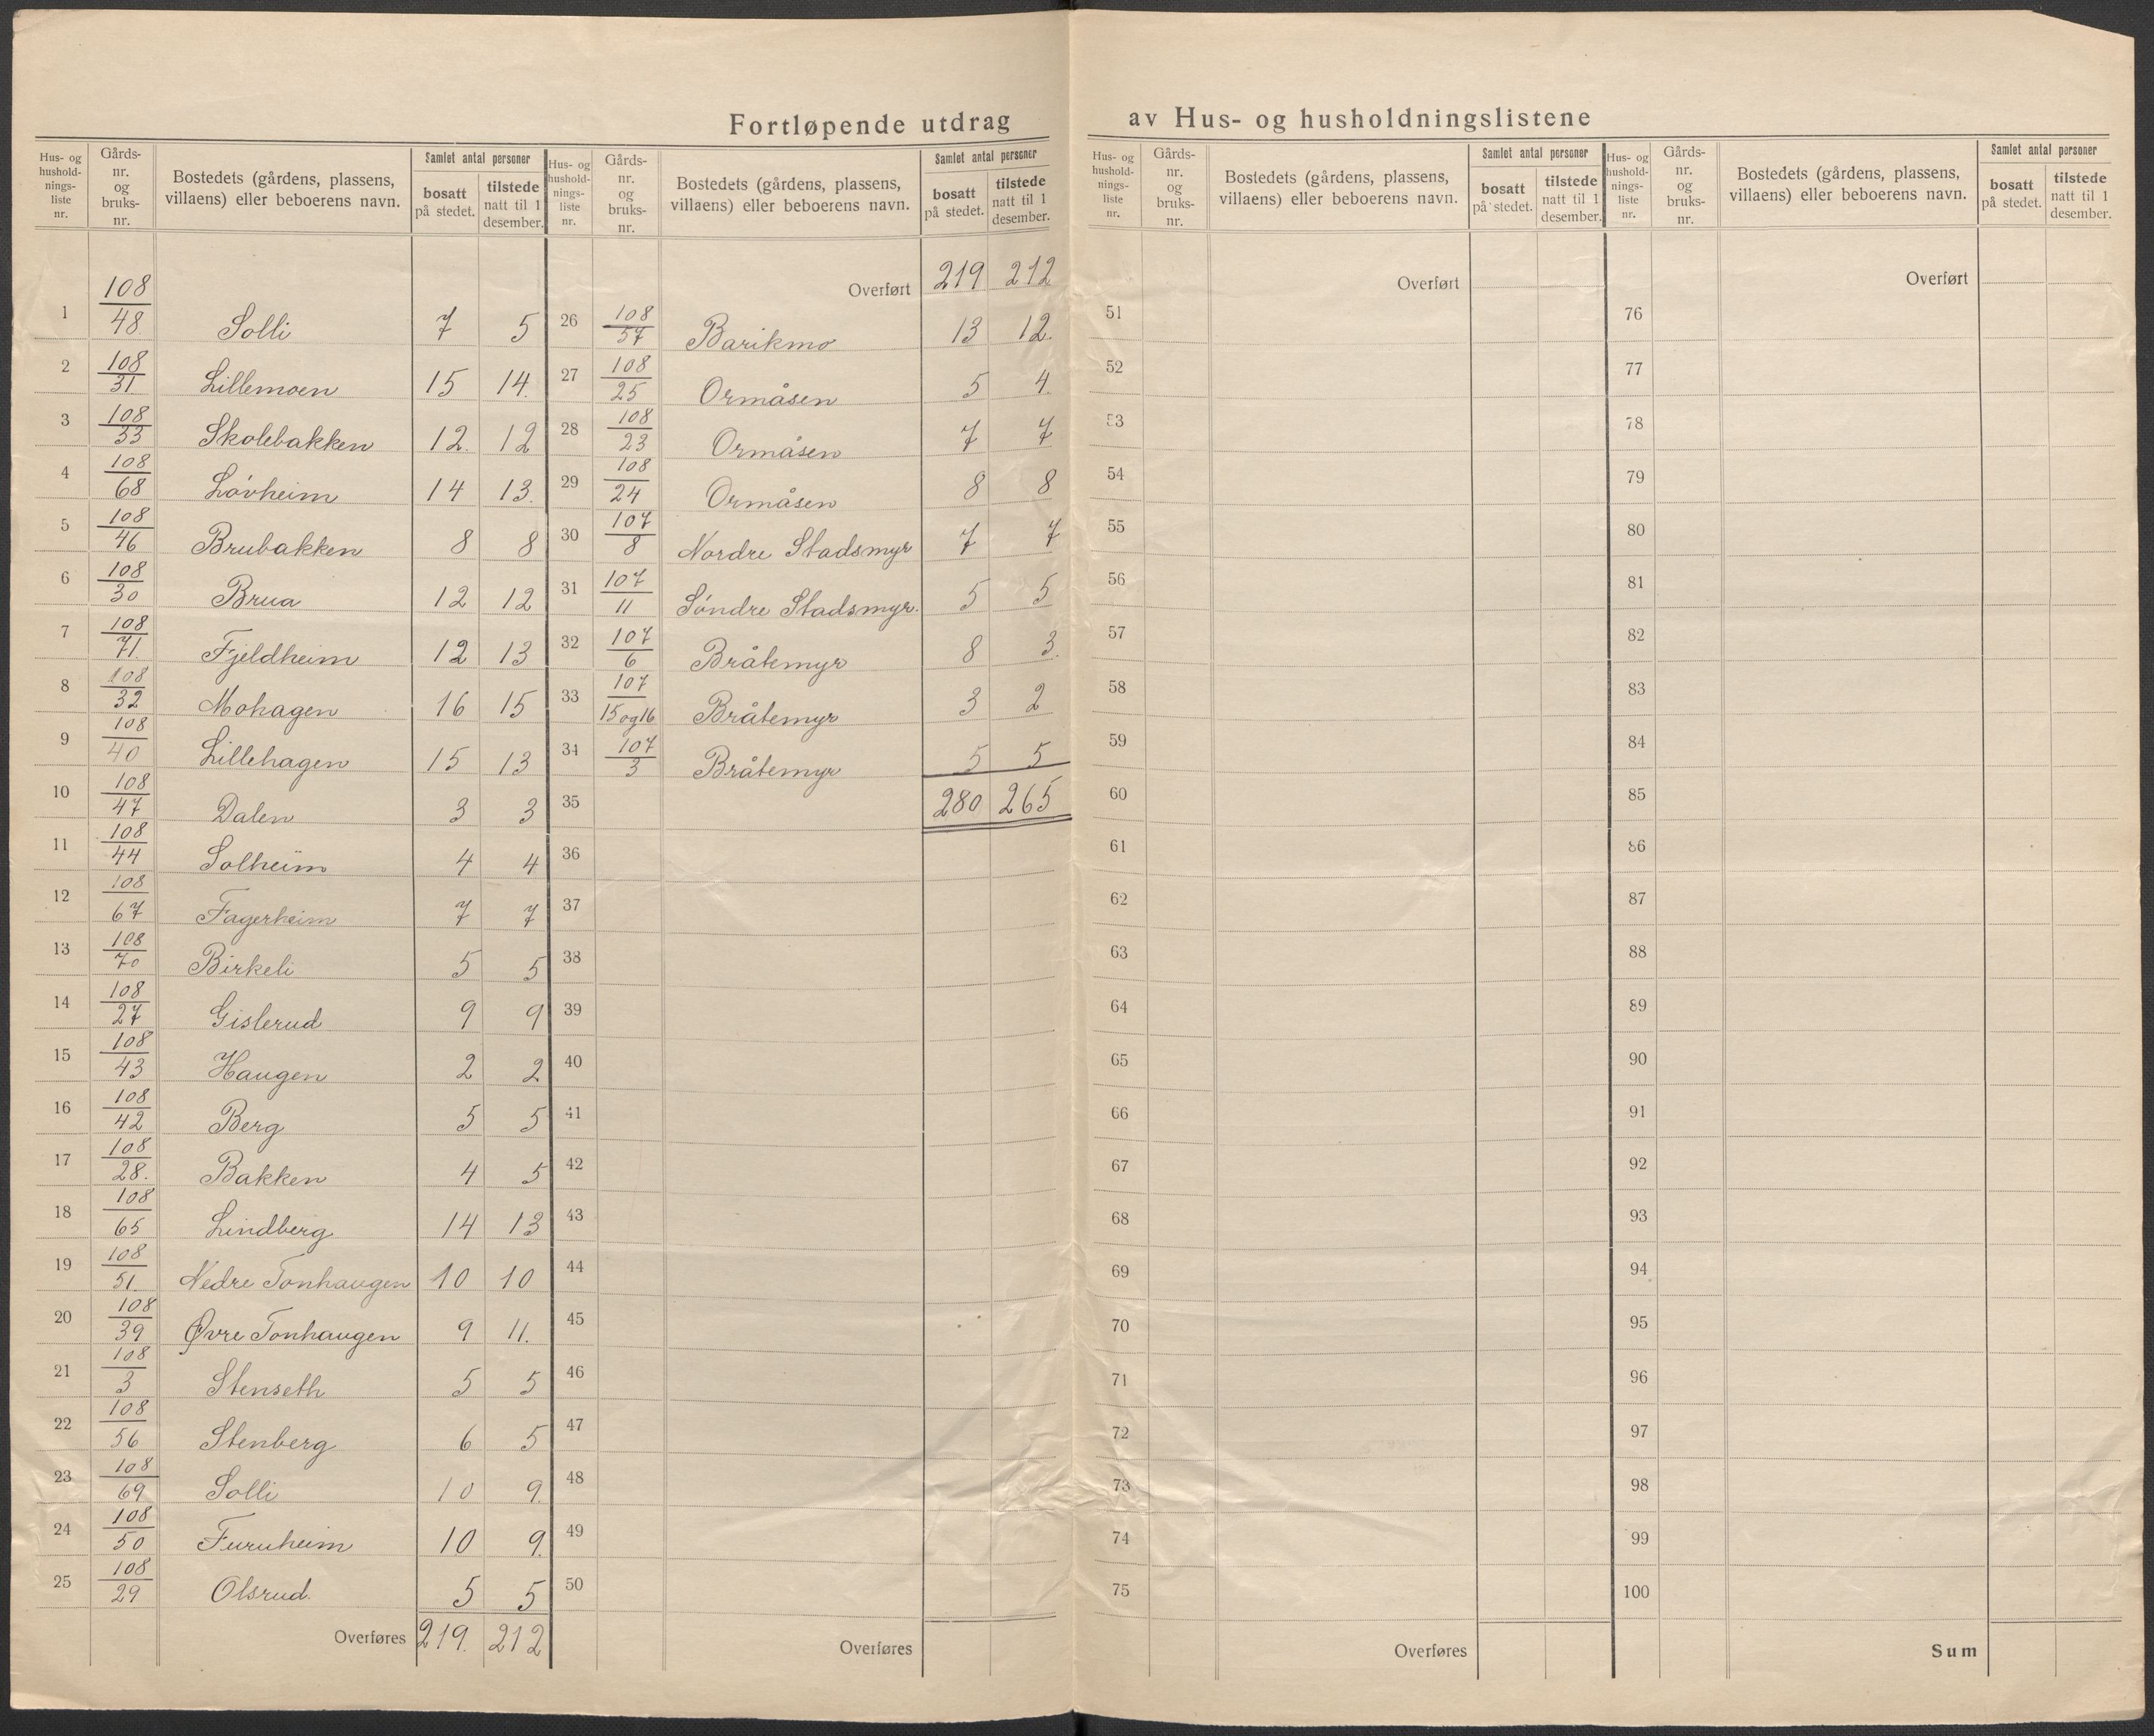 Fortløpende utdrag av Hus- og husholdningslistene
Hus- og husholdnings-liste nr. | Gårds-nr. og bruks-nr. | Bostedets (gårdens, plassens, villaens) eller beboerens navn. | Samlet antal personer | bosatt på stedet. | tilstede natt til 1 desember.
1 108/48 Solli 7 5
2 108/31. Lillemoen 15 14.
3 108/33 Skolebakken 12. 12
4 108/68 Lövheim 14 13.
5 108/46 Brubakken 8 8
6 108/30 Brua 12 12
7 108/71. Fjeldheim 12 13
8 108/32 Mohagen 16 15
9 108/40 Lillehagen 15 13
10 108/47 Dalen 3 3
11 108/44 Solheim 4 4
12 108/67 Fagerheim 7 7
13 108/70 Birkeli 5 5
14 108/27 Gislerud 9 9
15 108/43 Haugen 2 2
16 108/42 Berg 5 5
17 108/28. Bakken 4 5
18 108/65 Lindberg 14 13
19 108/51. Nedre Tonhaugen 10 10
20 108/39 Øvre Tonhaugen 9 11.
21 108/3 Stenseth 5 5
22 108/56 Stenberg 6 5
23 108/69 Solli 10 9.
24 108/50 Furuheim 10 9.
25 108/29 Olsrud. 5 5
Overføres 219. 212
Hus- og husholdnings-liste nr. | Gårds-nr. og bruks-nr. | Bostedets (gårdens, plassens, villaens) eller beboerens navn. | Samlet antal personer | bosatt på stedet. | tilstede natt til 1 desember.
Overført 219 212
26 108/57 Barikmo 13 12.
27 108/25 Ormåsen 5 4.
28 108/23 Ormåsen 7 7
29 108/24 Ormåsen 8 8
30 107/8 Nordre Stadsmyr 7 7
31 107/11 Söndre Stadsmyr. 5 5
32 107/6 Bråtemyr 8 3.
33 107/15 og 16 Bråtemyr 3 2
34 107/3 Bråtemyr 5 5
35 280 265
36
37
38
39
40
41
42
43
44
45
46
47
48
49
50
Overføres
Hus- og husholdnings-liste nr. | Gårds-nr. og bruks-nr. | Bostedets (gårdens, plassens, villaens) eller beboerens navn. | Samlet antal personer | bosatt på stedet. | tilstede natt til 1 desember.
Overført
51
52
53
54
55
56
57
58
59
60
61
62
63
64
65
66
67
68
69
70
71
72
73
74
75
Overføres
Hus- og husholdnings-liste nr. | Gårds-nr. og bruks-nr. | Bostedets (gårdens, plassens, villaens) eller beboerens navn. | Samlet antal personer | bosatt på stedet. | tilstede natt til 1 desember.
Overført
76
77
78
79
80
81
82
83
84
85
86
87
88
89
90
91
92
93
94
95
96
97
98
99
100
Sum